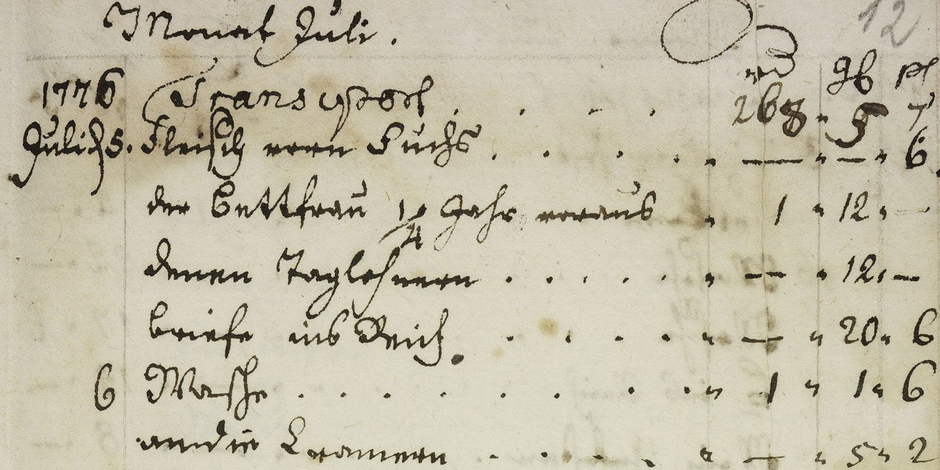 12
Monat Juli.
rth gh pf
1776 Transport . . . . 268 . 5 7
Julius 5. Fleisch vorn Fuchs . . . . . — " — " 6.
der bettfrau 1/4 Jahr voraus " 1 " 12 " —
denen Taglehnern . . . . . . " — " 12 " —
briefe ins Reich. . . . . " — " 20 " 6
6 Washe . . . . . . . . " 1 " 1 " 6
an die Kramern . . . . " - " 5 " 2